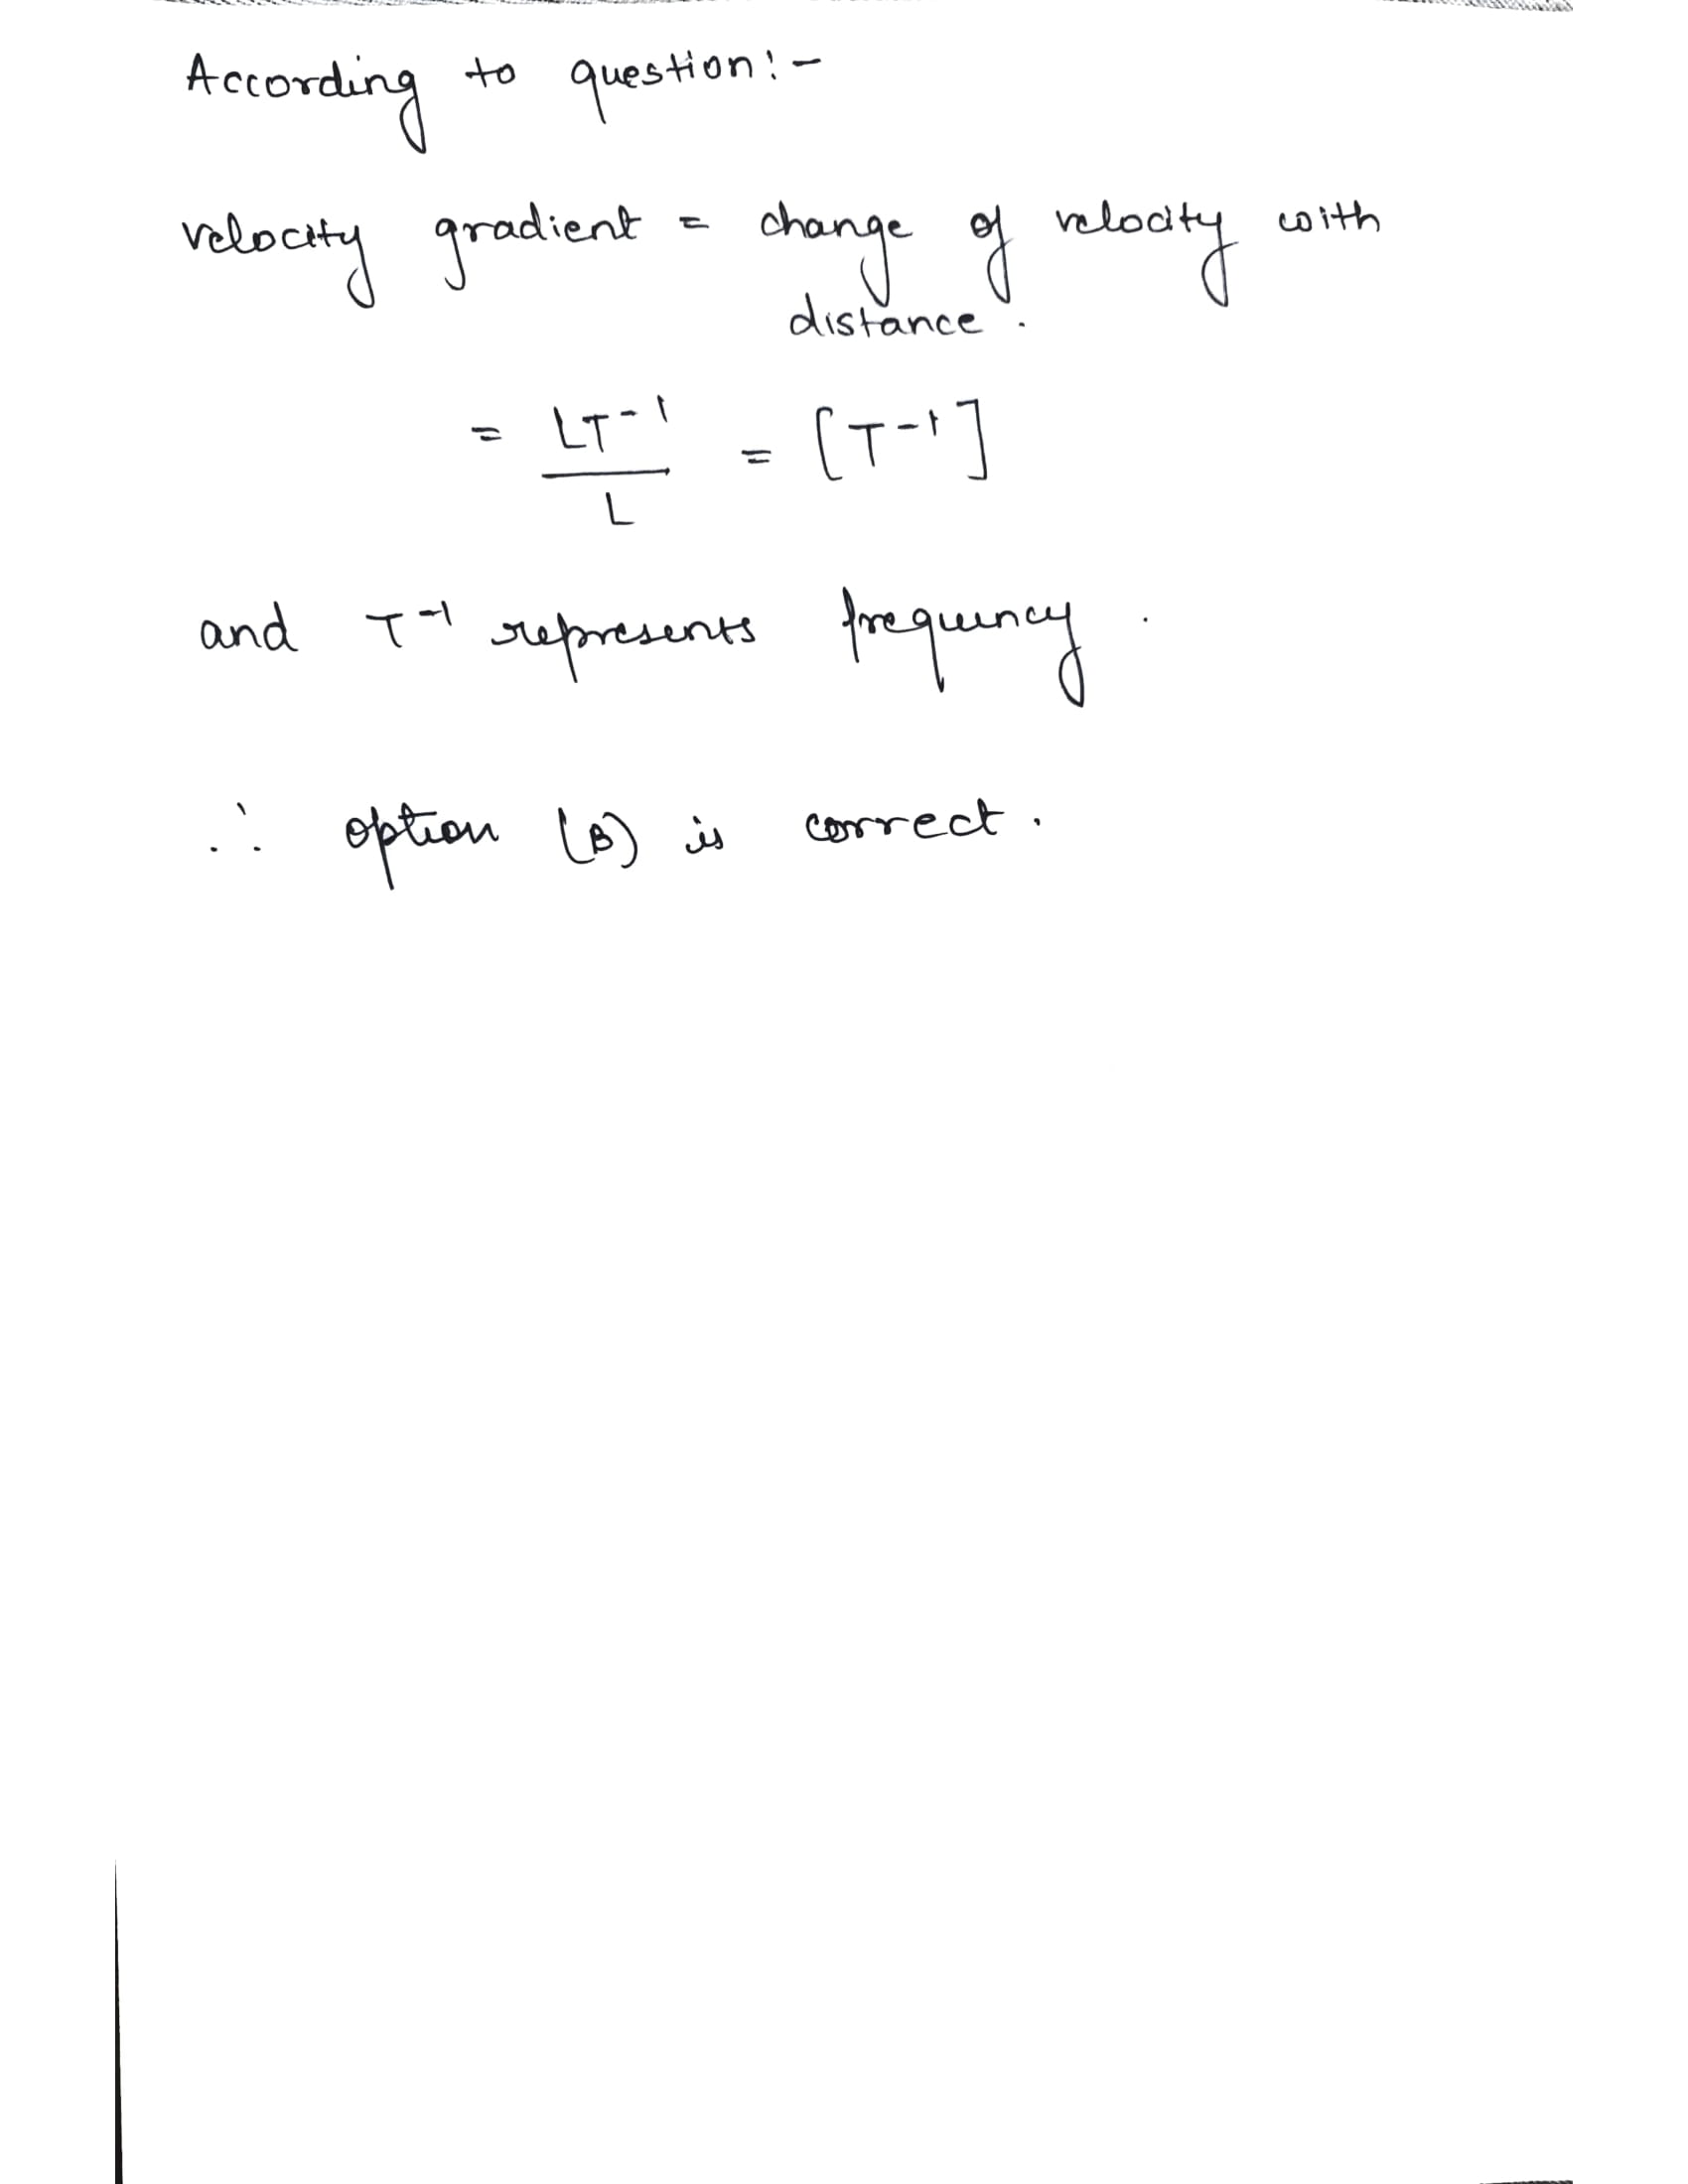 According to question:-
velocity gradient = change of velocity with
distance.
= LT⁻¹/L = [T⁻¹]
and T⁻¹ represents frequency.
∴ option (B) is correct.